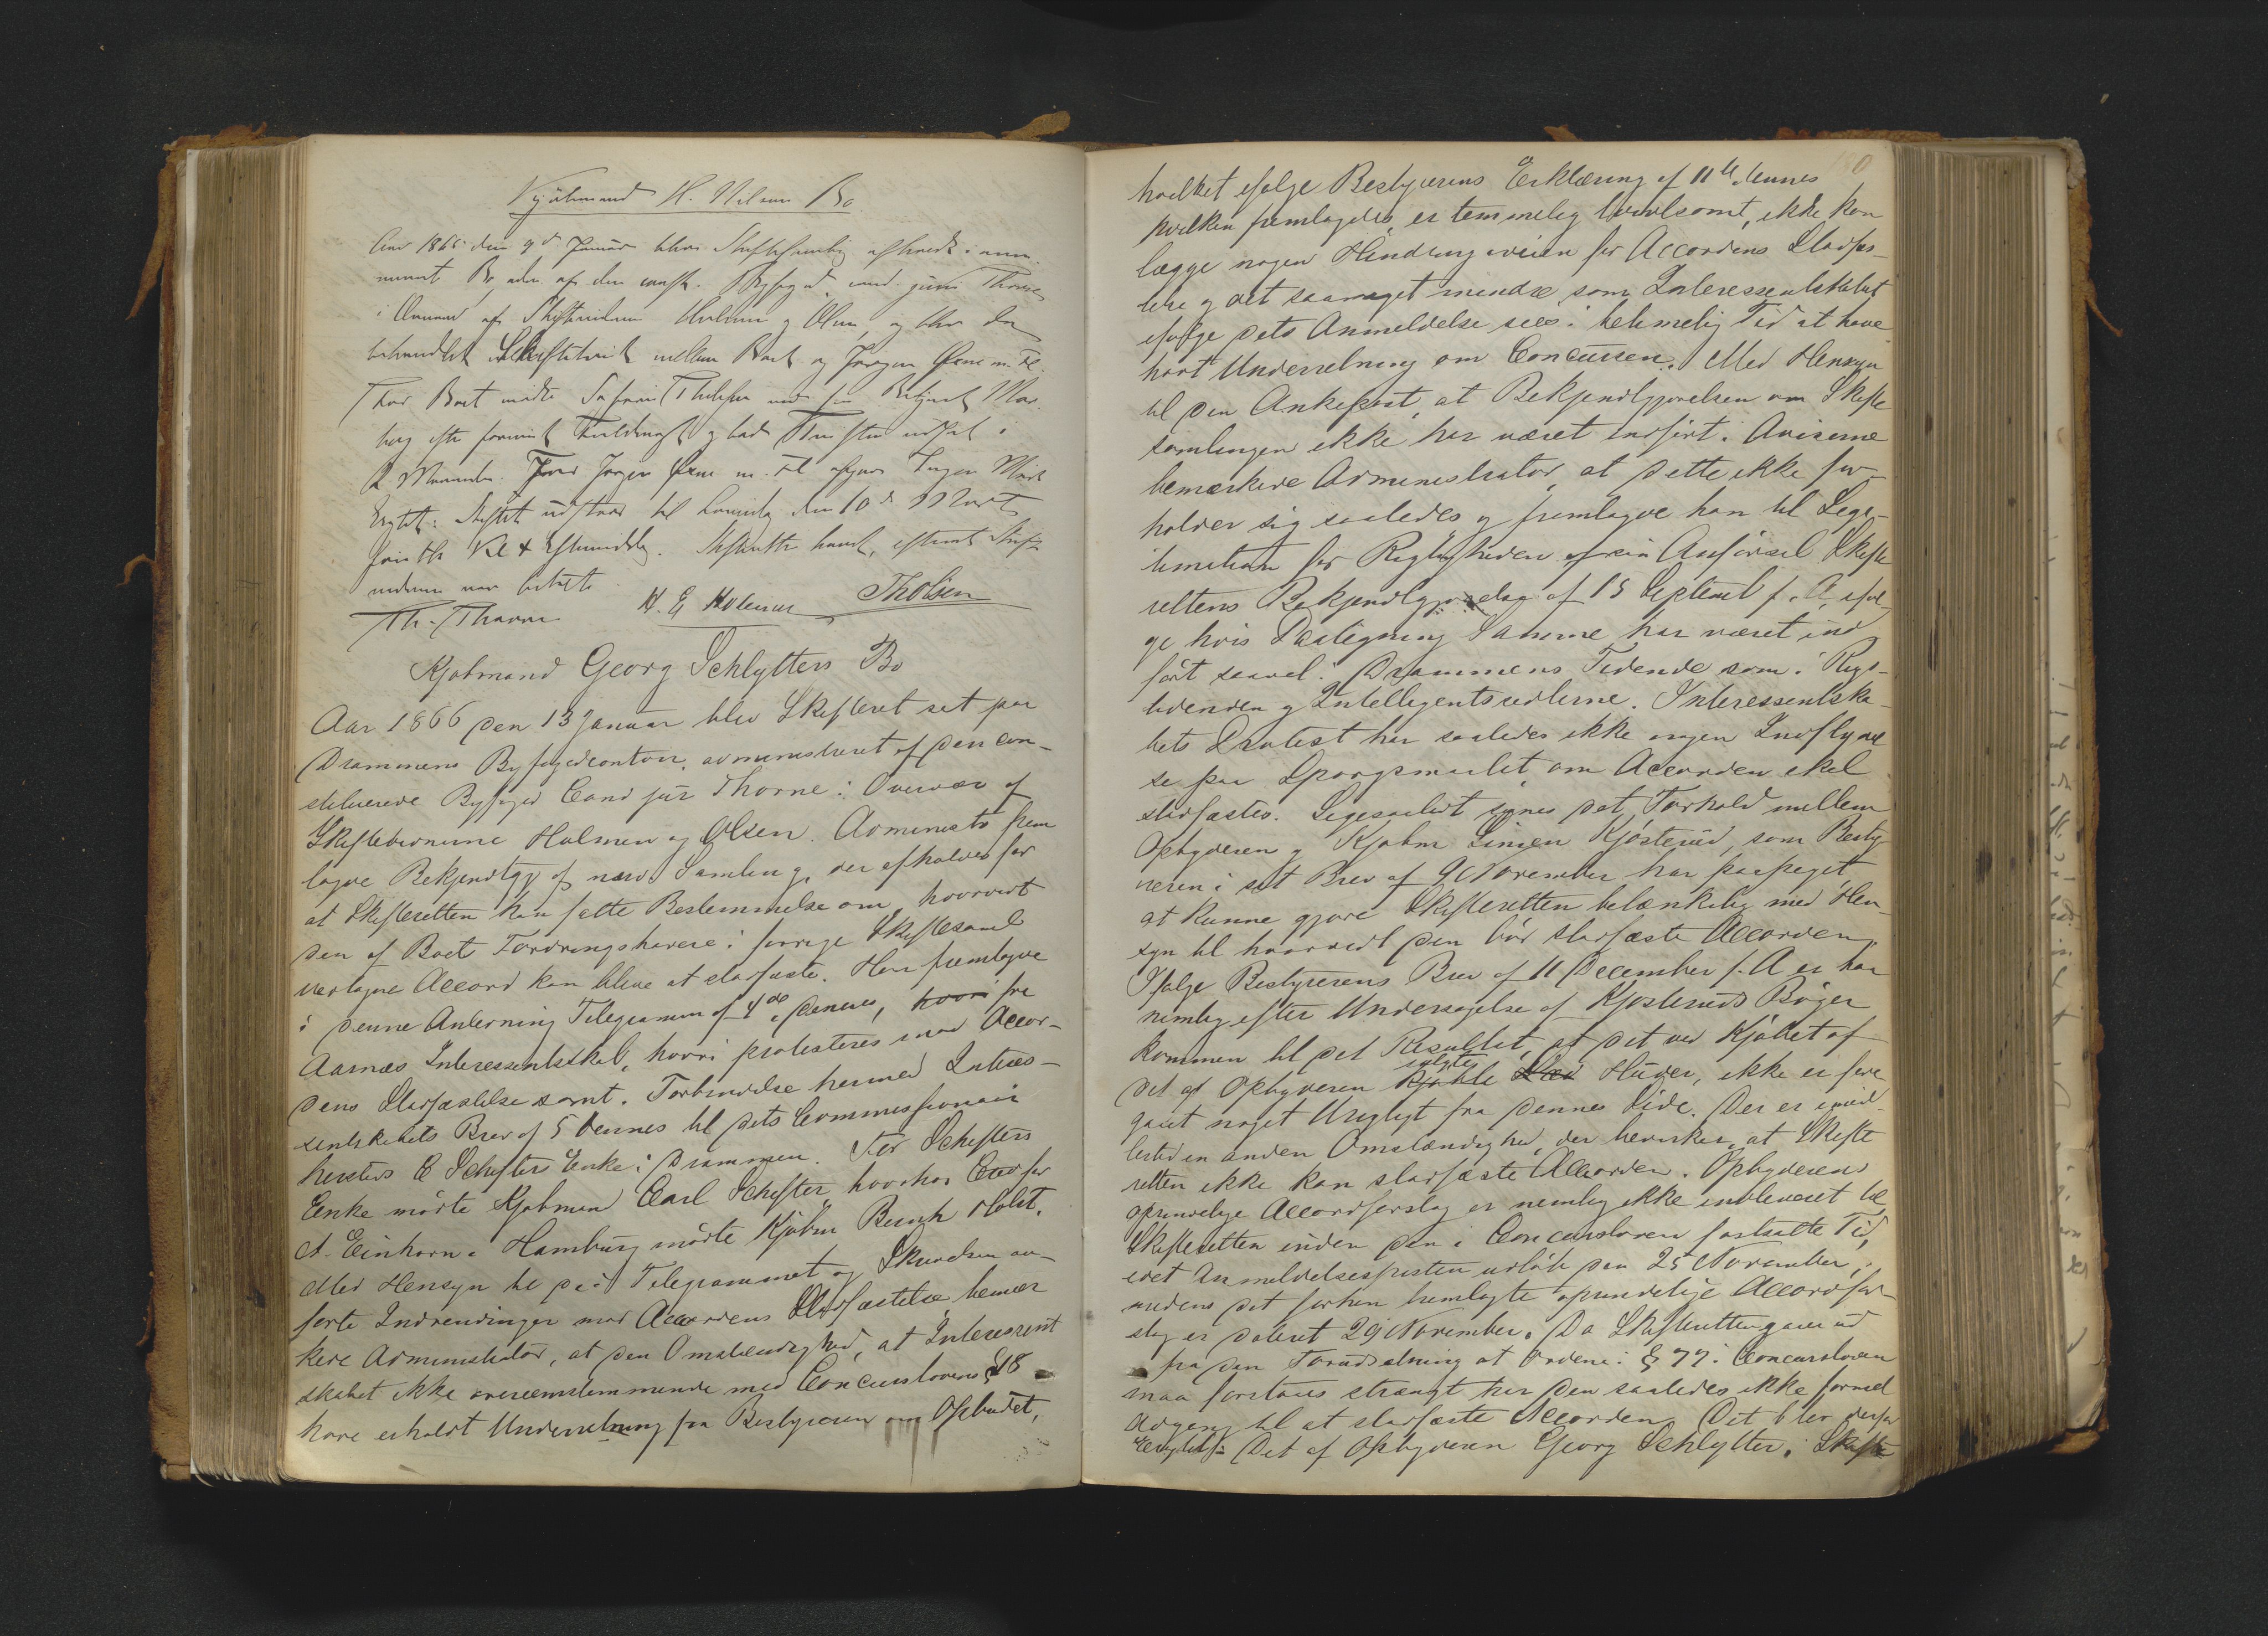 Kjöbmand H. Nilsens Bo
Aar 1866 den 9d Januar blev Skiftesamling afholdt i
Bo, adm. af den const. Byfoged, cand. juris Thorne
i Overvær af Skiftevidnerne Holmen og Olsen, og blev da
behandlet Skiftetvist mellem Boet og Jørgen
For Boet mødte
og bad Tvisten udsat i
2 Maaneder. For Jørgen Ingen
Eragtet: Skiftet udstaar til Løverdag den 10de Marts
Kl 4 Eftermiddag. Skifteretten hævet, efterat Skifte
vidnerne var betalte
Th. Thorne H. E. Holmen Th Olsen
Kjøbmand Georg Schlytters Bo
Aar 1866 den 13 Januar blev Skifteret sat paa
Drammens Byfogedcontoir, administreret af den con-
stituerede Byfoged Cand jur Thorne i Overvær af
Skiftevidnerne Holmen og Olsen. Administr frem
lagde Bekjendtgj af nærv. Samling, der afholdes for
at Skifteretten kan fatte Bestemmelse om, hvorvidt
den af Boets Fordringshavere i forrige Skiftesaml
vedtagne Accord kan blive at stadfæste. Han fremlagde
i denne Anledning Telegrammer af 4de dennes, hvori fra
Aarnæs Interessentskab, hvori protesteres mod Accor-
dens Stadfæstelse samt i Forbindelse hermed Interes-
sentskabets Brev af 5 dennes til dets Commissionair
hersteds C Schefters Enke i Drammen. For Schefters
Enke mødte Kjøbmand Carl Schefter, hvorhos Curs for
A. Einhorn i Hamburg mødte Kjøbm Bernh Holst.
Med Hensyn til de i Telegrammet og Skrivelsen an-
førte Indvendinger mod Accordens Stadfæstelse bemær
kede Administrator, at den Omstændighed, at Interessent
skabet ikke overeensstemmende med Concurslovens § 48
have erholdt Underretning fra Bestyreren om Opbudet,
hvilket ifølge Bestyrerens Erklæring af 11te dennes
hvilken fremlagdes, er temmelig tvivlsomt, ikke kan
lægge nogen Hindring iveien for Accordens Stadfæs-
telse og det saameget mindre som Interessentskabet
ifølge dets Anmeldelse sees i betimelig Tid at have
havt Underretning om Concursen. Med Hensyn
til den Ankepost, at Bekjendtgjørelsen om Skifte
samlingen ikke har været indført i Aviserne
bemærkede Administrator, at dette ikke for-
holder sig saaledes og fremlagde han til Legi-
timation for Rigtigheden af sin Anførsel Skifte
rettens Bekjendtgjørelse af 15 Septembr f. A, iføl-
ge hvis Paategning Samme har været ind
ført saavel i Drammens Tidende som i Rigs-
tidenden og Intelligentssedlerne. Interessentska-
bets Protest har saaledes ikke nogen Indflydel
se paa Spørgsmaalet, om Accorden skal
stadfæstes. Ligesaalidt synes det Forhold mellem
Opbyderen og Kjøbm Simen Kjøsterud, som Besty-
reren i sit Brev af 9 November har paapeget
at kunne gjøre Skifteretten betænkelig med Hen-
syn til hvorvidt den bør stadfæste Accorden.
Ifølge Bestyrerens Brev af 11 December f. A er han
nemlig efter Undersøgelse af Kjøsteruds Bøger
kommen til det Resultat, at det ved Kjøbet af
det af Opbyderen solgte Huder, ikke er fore
gaaet noget Urigtigt fra dennes Side. Der er imid-
lertid en anden Omstændighed, der bevirker, at Skifte
retten ikke kan stadfæste Accorden. Opbyderens
oprindelige Accordforslag er nemlig ikke indleveret til
Skifteretten inden den i Concursloven fastsatte Tid,
idet Anmeldelsesfristen udløb den 25 November,
medens det forhen fremlagte oprindelige Accordfor-
slag er dateret 29 November. Da Skifteretten gaar ud
fra den Forudsætning at Ordene i § 77 i Concursloven
maa forstaaes strængt har den saaledes ikke formel
Adgang til at stadfæste Accorden. Det blev derfor
Eragtet: Det af Opbyderen Georg Schlytter i Skifte